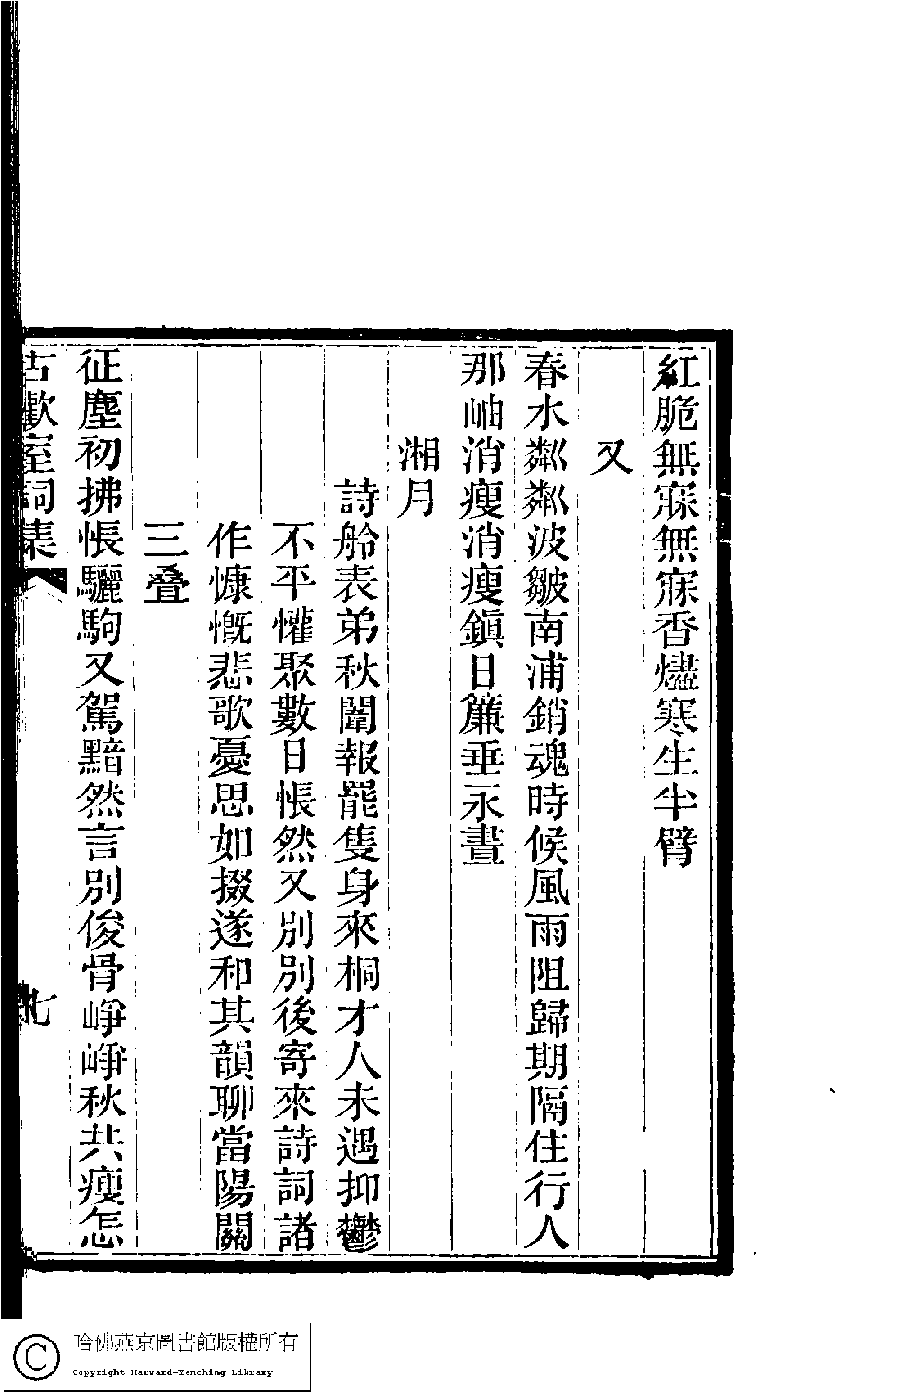 紅脆無寐無寐香燼寒生半臂
又
春水粼粼波皺南浦銷魂時候風雨阻歸期隔住行人
那岫消瘦消瘦鎭日簾垂永晝
湘月
詩舲表弟秋闈報罷隻身來桐才人未遇抑鬱
不平懽聚數日悵然又別別後寄來詩詞諸
作慷慨悲歌憂思如掇遂和其韻聊當陽關
三疊
征塵初拂悵驪駒又駕黯然言別俊骨崢崢秋共瘦怎
古歡室詞集
七
哈佛燕京圖書館版權所有
Copyright Harvard-Yenching Library